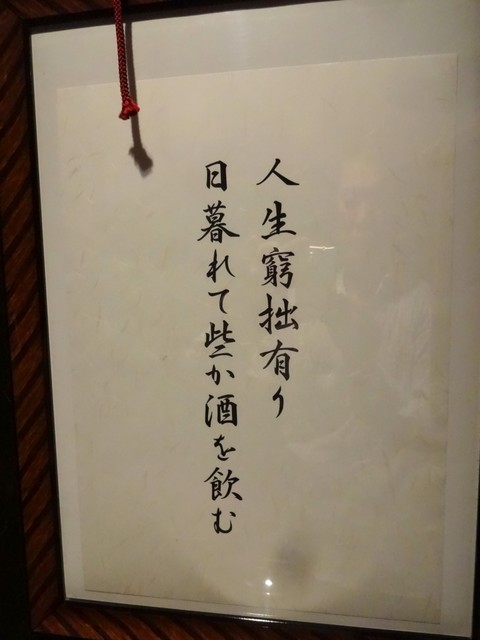 人生窮拙有り
日暮れて些か酒を飲む